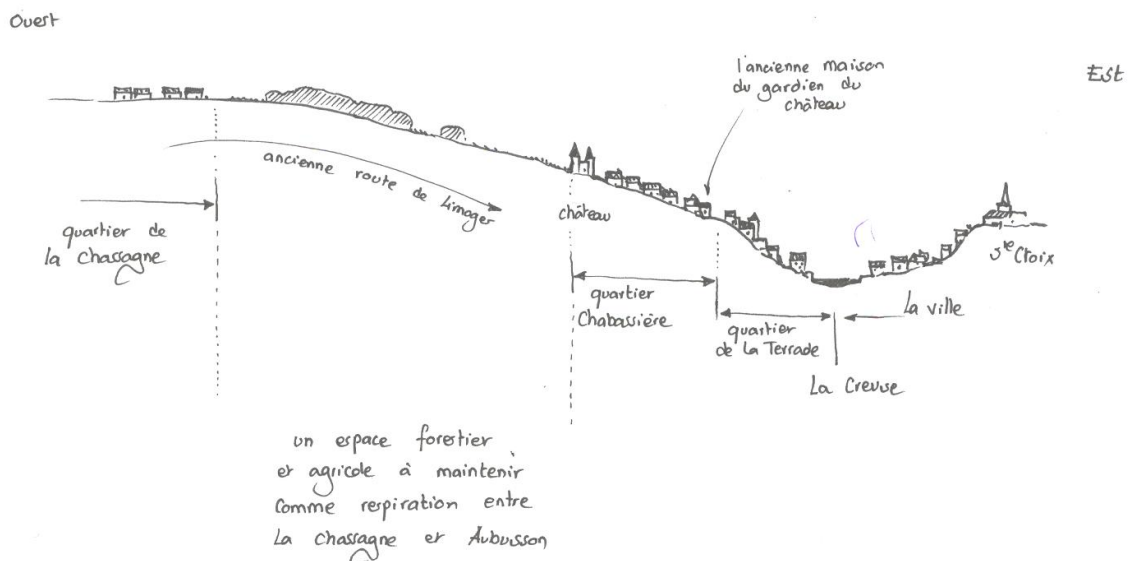 Ouest
Est
l'ancienne maison
du gardien du
château
ancienne route de Limoges
quartier de
la Chassagne
château
Ste Croix
quartier
Chabassière
quartier
de la Terrade
La ville
La Creuse
un espace forestier
et agricole à maintenir
comme respiration entre
La Chassagne et Aubusson